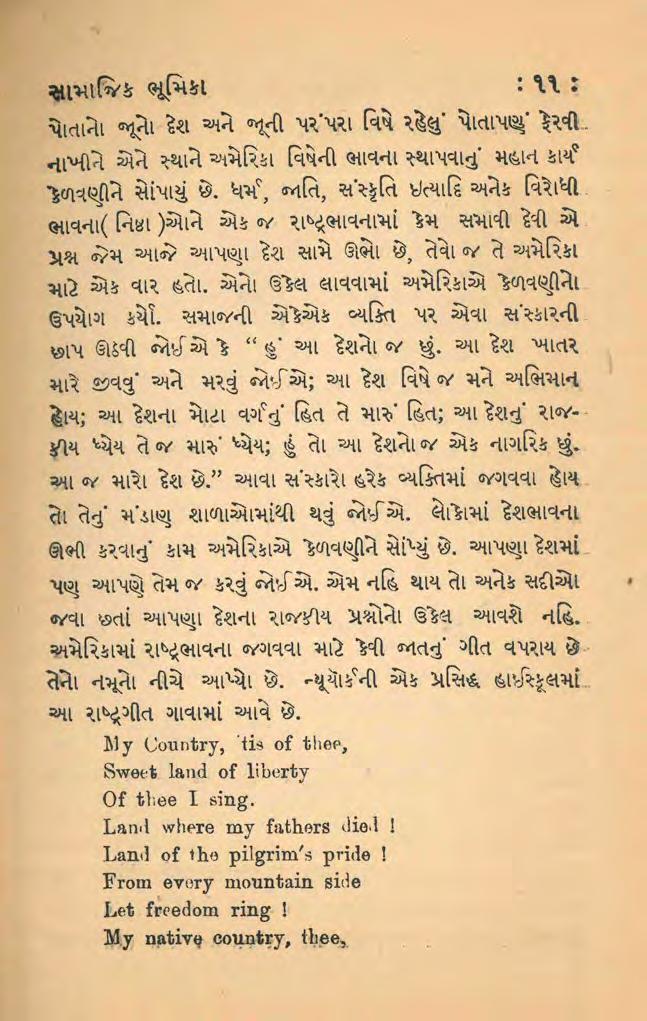 સામાજિક ભૂમિકા : ૧૧ :
પોતાનો જૂનો દેશ અને જૂની પરંપરા વિષે રહેલું પોતાપણું ફેરવી
નાખીને એને સ્થાને અમેરિકા વિષેની ભાવના સ્થાપવાનું મહાન કાર્ય
કેળવણીને સોંપાયું છે. ધર્મ, જાતિ, સંસ્કૃતિ ઇત્યાદિ અનેક વિરોધી
ભાવના( નિષ્ઠા )ઓને એક જ રાષ્ટ્રભાવનામાં કેમ સમાવી દેવી એ
પ્રશ્ન જેમ આજે આપણા દેશ સામે ઊભો છે, તેવો જ તે અમેરિકા
માટે એક વાર હતો. એનો ઉકેલ લાવવામાં અમેરિકાએ કેળવણીનો
ઉપયોગ કર્યો. સમાજની એકેએક વ્યક્તિ પર એવા સંસ્કારની
છાપ ઊઠવી જોઈએ કે “ હું આ દેશનો જ છું. આ દેશ ખાતર
મારે જીવવું અને મરવું જોઈએ; આ દેશ વિષે જ મને અભિમાન
હોય; આ દેશના મોટા વર્ગનું હિત તે મારું હિત; આ દેશનું રાજ-
કીય ધ્યેય તે જ મારું ધ્યેય; હું તો આ દેશનો જ એક નાગરિક છું.
આ જ મારો દેશ છે.” આવા સંસ્કારો હરેક વ્યક્તિમાં જગવવા હોય
તો તેનું મંડાણ શાળાઓમાંથી થવું જોઈએ. લોકોમાં દેશભાવના
ઊભી કરવાનું કામ અમેરિકાએ કેળવણીને સોંપ્યું છે. આપણા દેશમાં
પણ આપણે તેમ જ કરવું જોઈએ. એમ નહિ થાય તો અનેક સદીઓ
જવા છતાં આપણા દેશના રાજકીય પ્રશ્નોનો ઉકેલ આવશે નહિ.
અમેરિકામાં રાષ્ટ્રભાવના જગવવા માટે કેવી જાતનું ગીત વપરાય છે
તેનો નમૂનો નીચે આપ્યો છે. ન્યૂયૉર્કની એક પ્રસિદ્ધ હાઈસ્કૂલમાં
આ રાષ્ટ્રગીત ગાવામાં આવે છે.
My Country, 'tis of thee,
Sweet land of liberty
Of thee I sing.
Land where my fathers died !
Land of the pilgrim's pride !
From every mountain side
Let freedom ring !
My native country, thee,